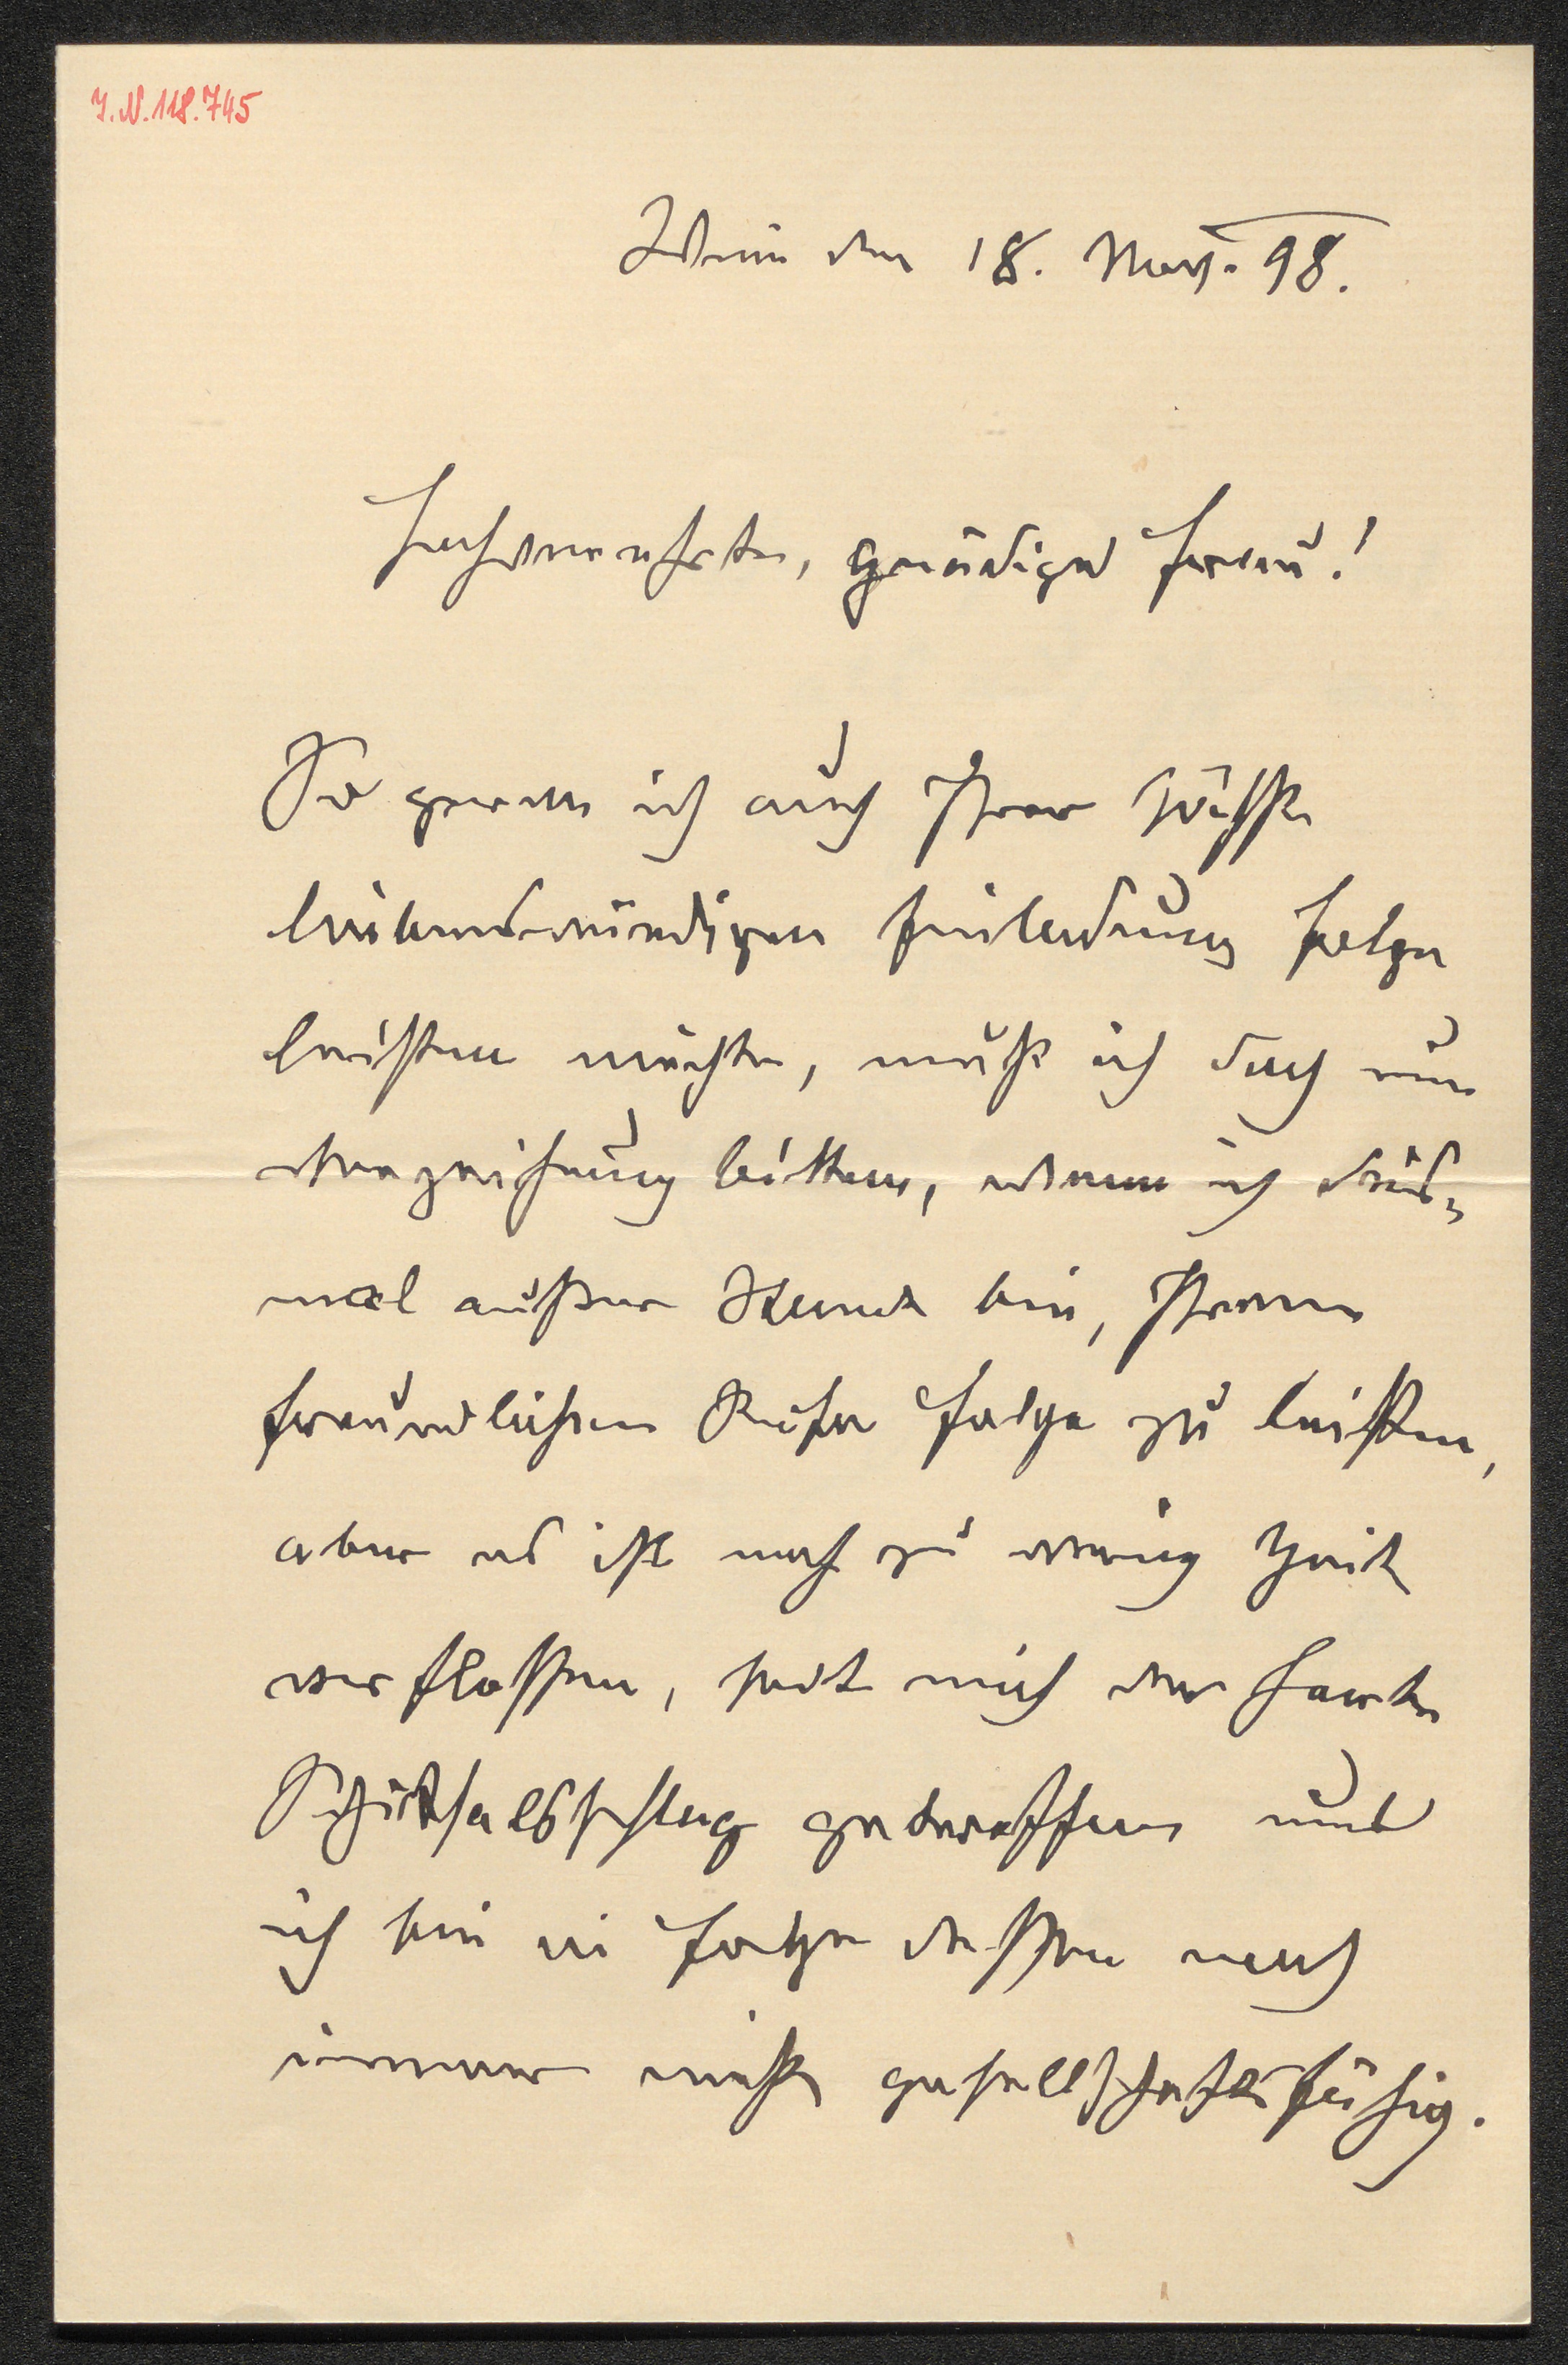 I.N.118.745
Wien den 18. Nov. 98.
Hochverehrte, gnädige Frau!
So gerne ich auch Ihrer höchst
liebenswürdigen Einladung Folge
leisten möchte, muß ich doch um
Verzeihung bitten, wenn ich dies-
mal außer Stande bin, Ihrem
freundlichen Rufe Folge zu leisten,
aber es ist noch zu wenig Zeit
verflossen, seit mich der harte
Schicksalsschlag getroffen und
ich bin in Folge dessen noch
immer nicht gesellschaftsfähig.